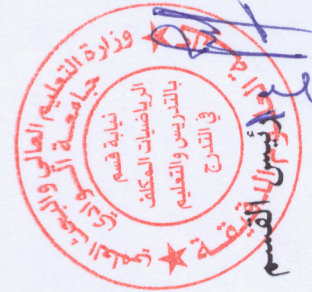 وزارة التعليم العالي والبحث العلمي
جامعة الوادي
نيابة قسم
الرياضيات المكلف
بالتدريس والتعليم
في التدرج
رئيس القسم